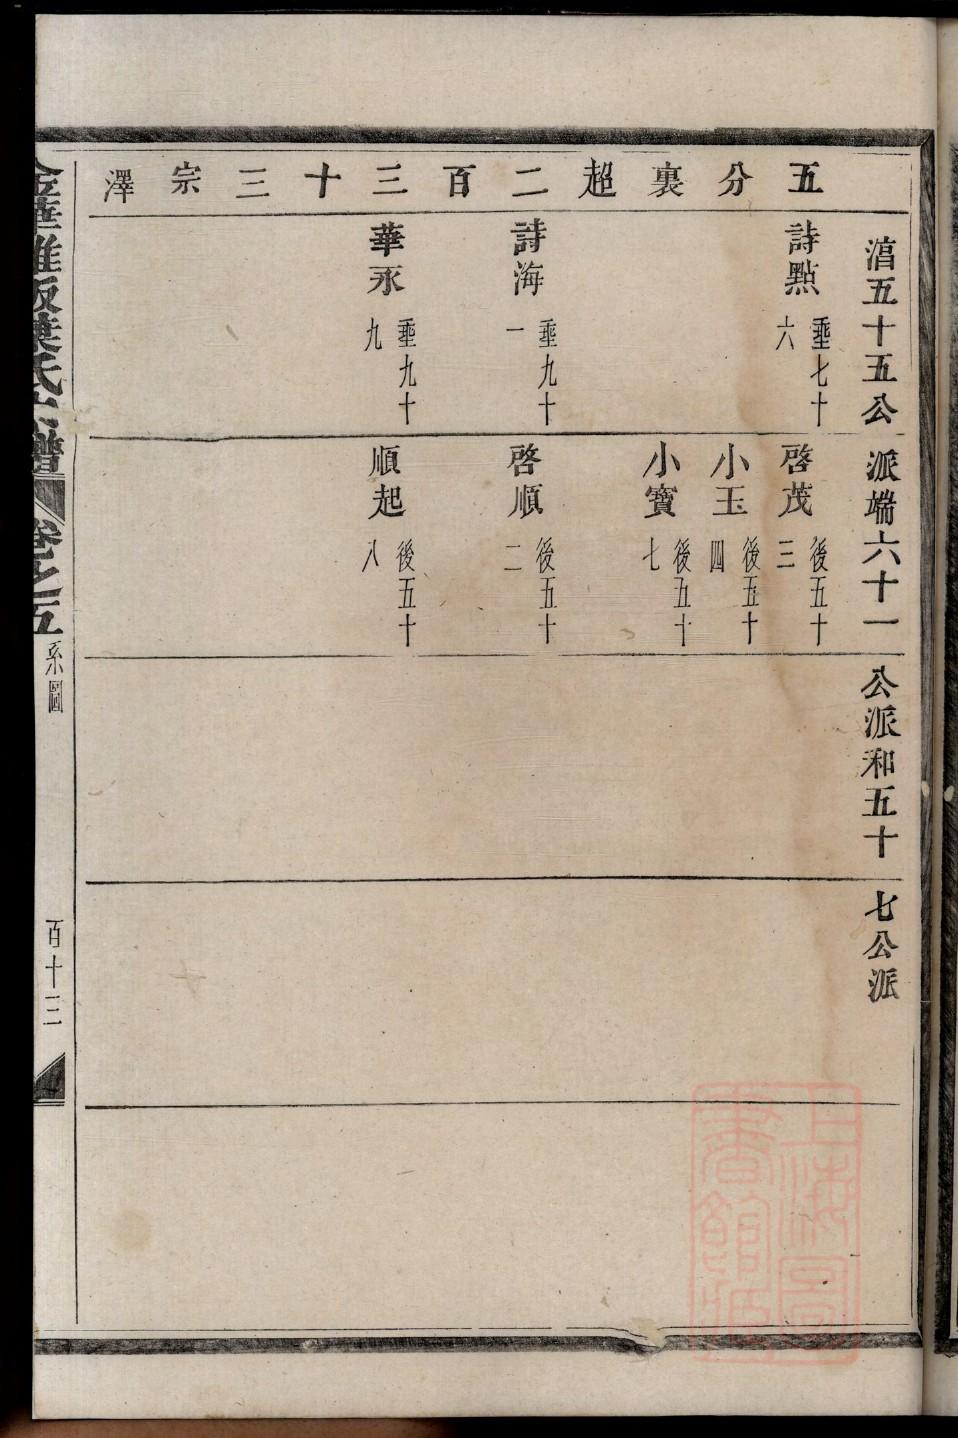 五分裏超二百三十三宗澤
湻五十五公派端六十一公派和五十七公派
詩點 垂七十六
詩海 垂九十一
華永 垂九十九
啓茂 後五十三
小玉 後五十四
小寳 後五十七
啓順 後五十二
順起 後五十八
卷之五 系圖
百十三
上海圖書館藏